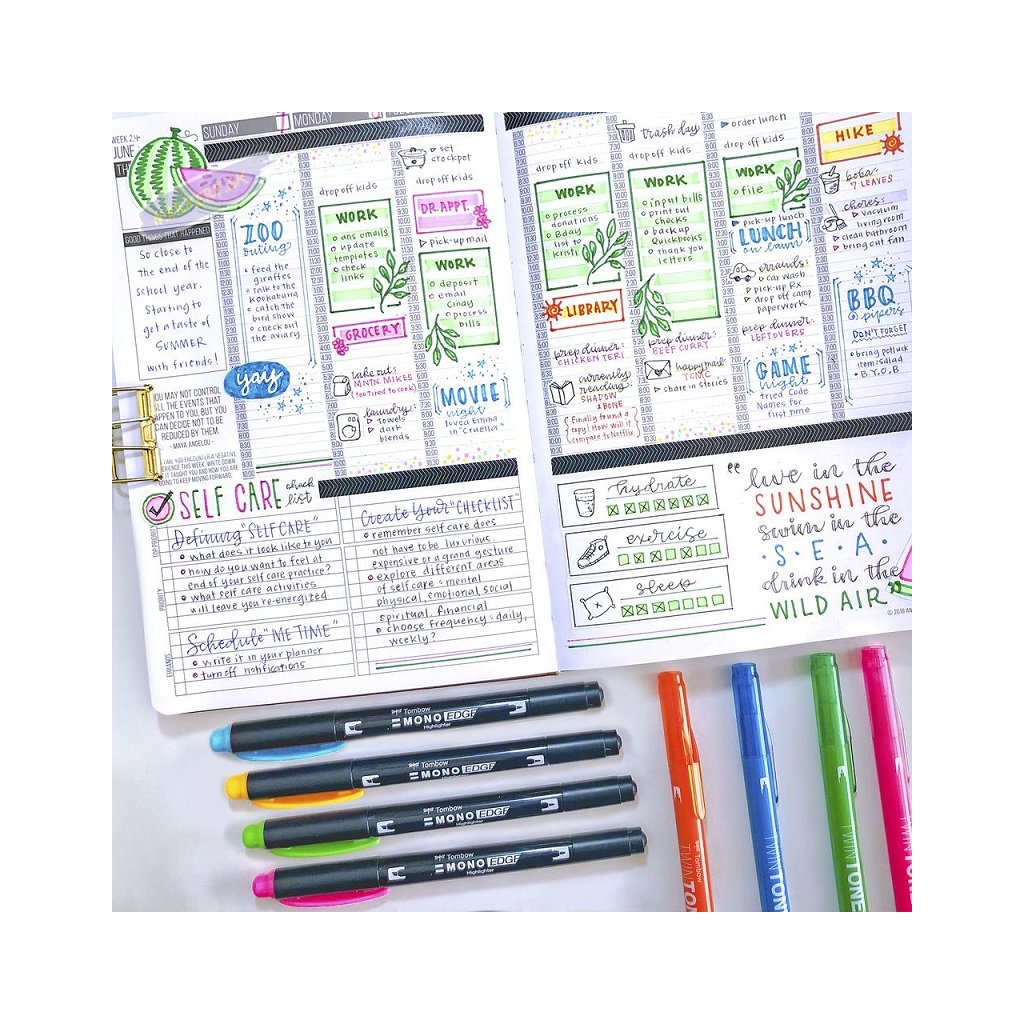 WEEK 24
JUNE
SUNDAY
7
MONDAY
GOOD THINGS THAT HAPPENED
So close to
the end of the
school year.
Starting to
get a taste of
SUMMER
with friends!
YOU MAY NOT CONTROL
ALL THE EVENTS THAT
HAPPEN TO YOU, BUT YOU
CAN DECIDE NOT TO BE
REDUCED BY THEM.
- MAYA ANGELOU -
ZOO
outing
feed the
giraffes
talk to the
Kookaburra
catch the
bird show
check out
the aviary
yay
WORK
ans emails
update
templates
check
links
GROCERY
take out:
MNTN MIKES
(too tired to cook)
laundry:
towels
dark
blends
set
crockpot
drop off kids
DR. APPT.
pick-up mail
WORK
deposit
email
Cindy
process
bills
MOVIE
night
loved Emma
in "Cruella"
drop off kids
WORK
process
donations
Bday
list to
Kristi
LIBRARY
prep dinner:
CHICKEN TERI
currently
reading:
SHADOW
& BONE
Finally found a
copy! How will it
compare to Netflix
trash day
drop off kids
WORK
input bills
print out
checks
backup
Quickbooks
thank you
letters
prep dinner:
BEEF CURRY
happy mail:
TCMC
share in stories
order lunch
drop off kids
WORK
file
pick-up lunch
LUNCH
on lawn
errands:
car wash
pick-up Rx
drop off camp
paperwork
prep dinner:
LEFTOVERS
GAME
night
tried Code
Names for
first time
HIKE
boba:
7 LEAVES
chores:
vacuum
living room
clean bathroom
bring out fan
BBQ
DON'T FORGET
bring potluck
item: salad
B.Y.O.B
SELF CARE check
list
TOP PRIORITY
PRIORITY
ERRANDS
Defining "SELF CARE"
what does it look like to you
how do you want to feel at
end of your self care practice?
what self care activities
will leave you re-energized
Schedule "ME TIME"
write it in your planner
turn off notifications
Create Your "CHECKLIST"
remember self care does
not have to be luxurious,
expensive or a grand gesture
explore different areas
of self care: mental
physical, emotional, social
spiritual, financial
choose frequency: daily,
weekly?
hydrate
exercise
sleep
"live in the
SUNSHINE
swim in the
·S·E·A·
drink in the
WILD AIR"
Tombow
MONO EDGE
Highlighter
Tombow
MONO EDGE
Highlighter
Tombow
MONO EDGE
Highlighter
Tombow
MONO EDGE
Highlighter
Tombow
TWINTONE
TWINTONE
TWINTONE
TWINTONE